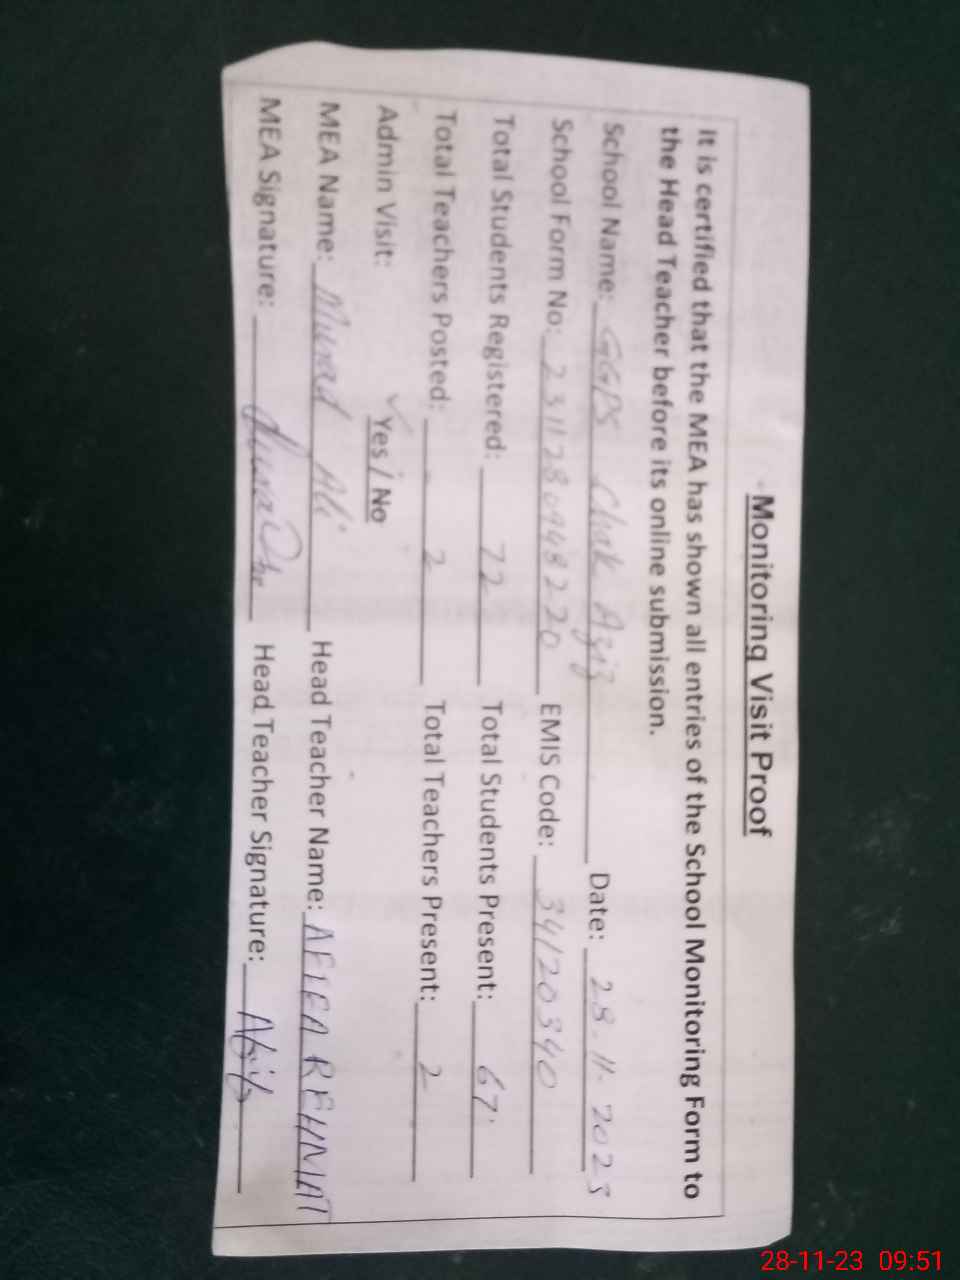 Monitoring Visit Proof
It is certified that the MEA has shown all entries of the School Monitoring Form to
the Head Teacher before its online submission.
School Name: GGPS Chak Aziz Date: 28.11.2023
School Form No: 2311280948220 EMIS Code: 34120340
Total Students Registered: 72 Total Students Present: 67
Total Teachers Posted: 2 Total Teachers Present: 2
Admin Visit: ✓ Yes / No
MEA Name: Murad Ali Head Teacher Name: AFIFA REHMAT
MEA Signature: Head Teacher Signature:
28-11-23 09:51